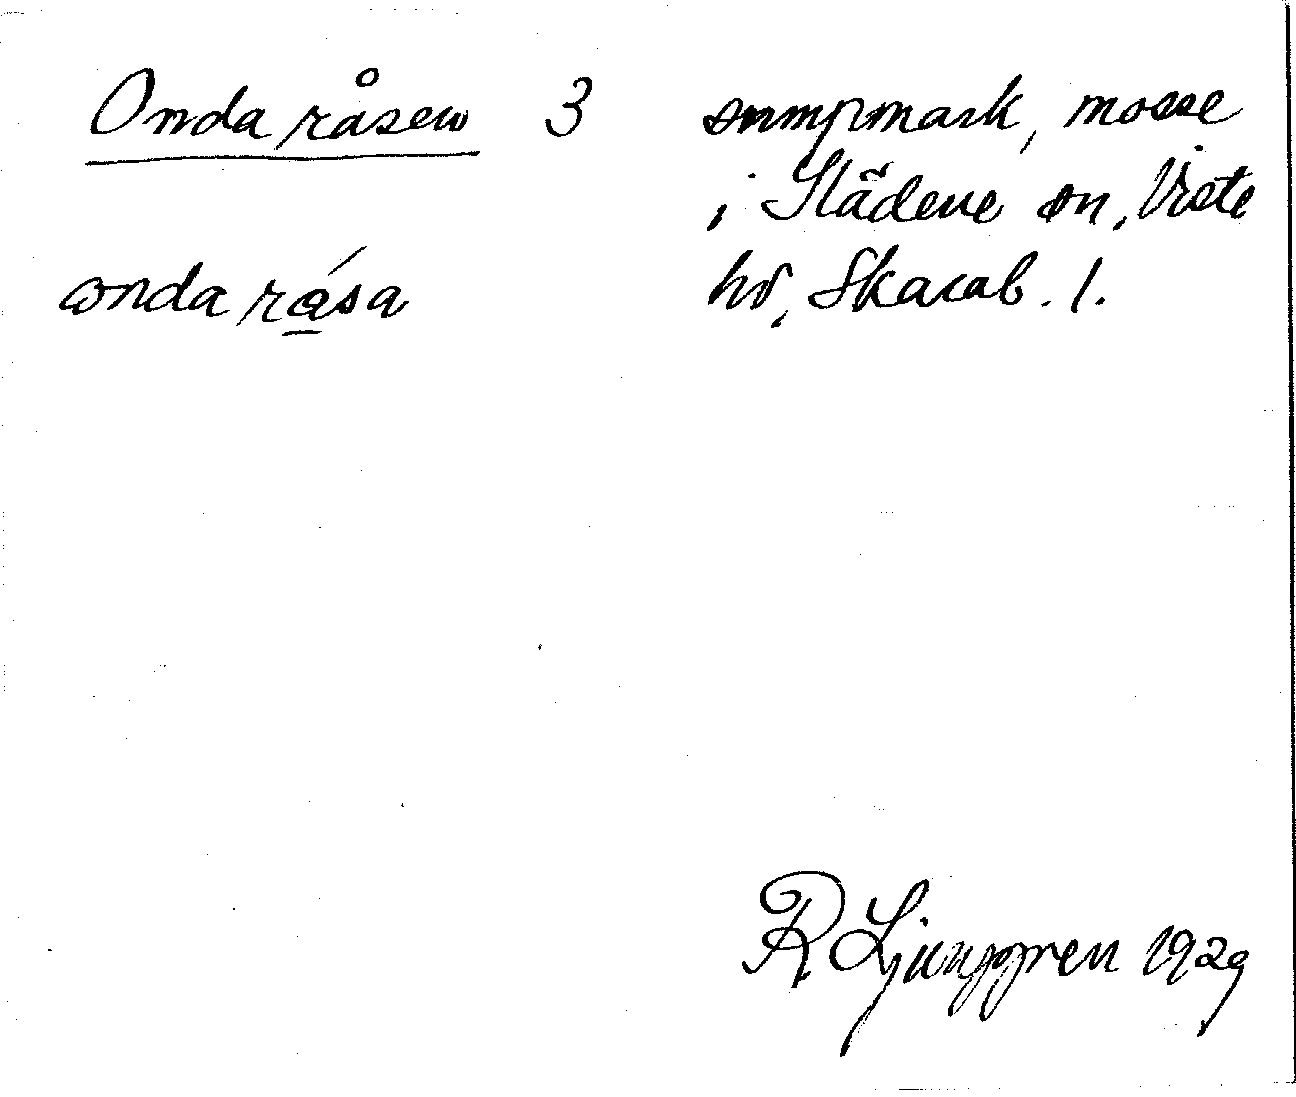 Onda råsen 3
sumpmark, mosse
i Slädene sn, Viste
hd, Skarab. l.
onda rása
R Ljunggren 1929